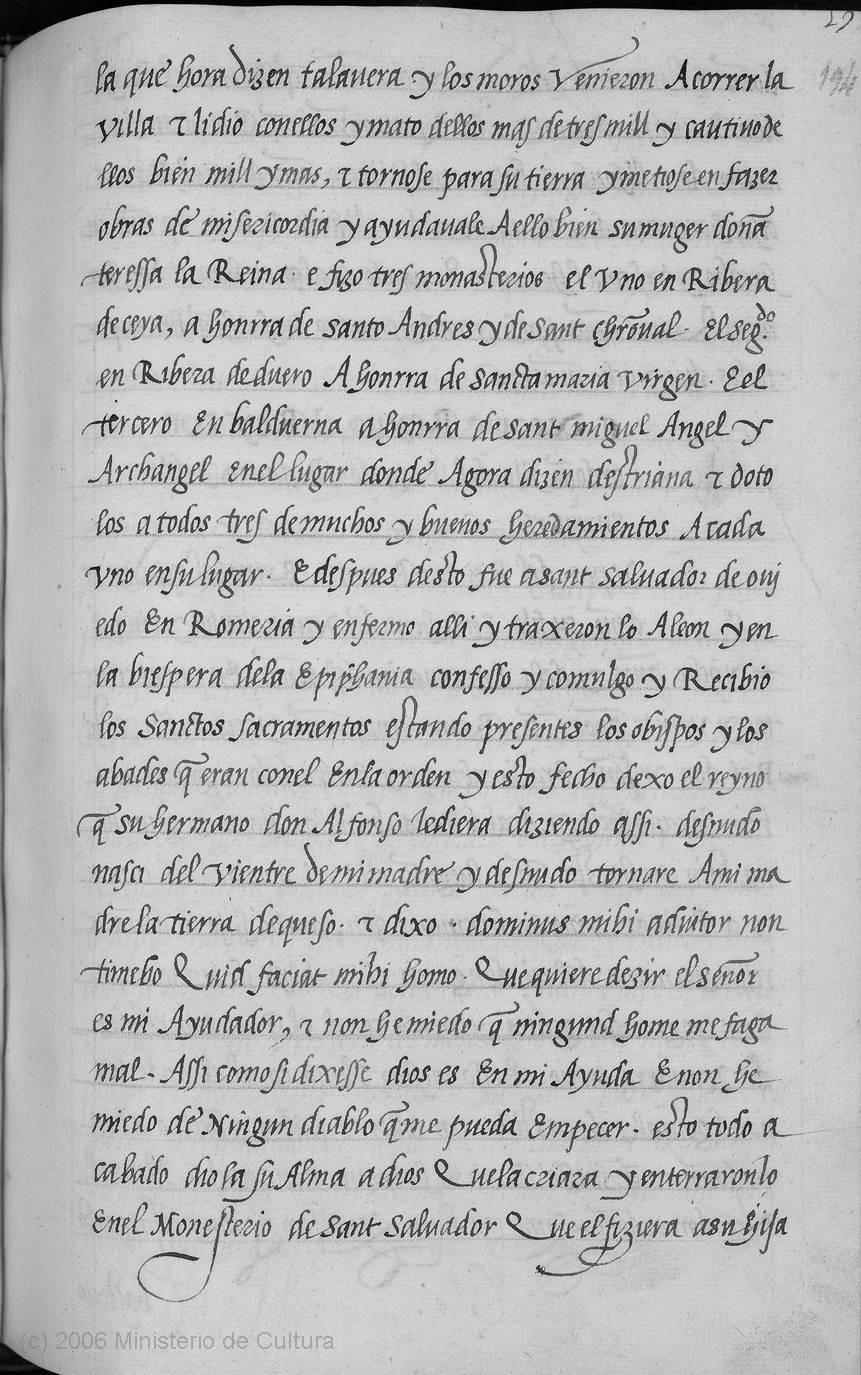 29
194
la que hora dizen talauera y los moros Venieron A correr la
villa τ lidio conellos y mato dellos mas de tres mill y cautiuo de
llos bien mill y mas, τ tornose para su tierra y metiose en fazer
obras de misericordia y ayudauale A ello bien su muger doña
teressa la Reina e fizo tres monasterios el Vno en Ribera
de ceya, a honrra de santo Andres y de sant chr̃oual. El seg.do
en Ribera de duero A honrra de sancta maria virgen. E el
tercero En balduerna a honrra de sant miguel Angel y
Archangel En el lugar donde Agora dizen destriana τ doto
los a todos tres de muchos y buenos heredamientos A cada
vno en su lugar. E despues desto fue a sant saluador de ovi
edo En Romeria y enfermo alli y traxeron lo A leon y en
la biespera dela Epiphania confesso y comulgo y Recibio
los Sanctos sacramentos estando presentes los obispos y los
abades q̃ eran con el En la orden y esto fecho dexo el reyno
q̃ su hermano don Alfonso le diera diziendo assi. desnudo
nasci del vientre de mi madre y desnudo tornare A mi ma
dre la tierra de que so. τ dixo. dominus mihi adiutor non
timebo Quid faciat mihi homo. Que quiere dezir el señor
es mi Ayudador, τ non he miedo q̃ ningund home me faga
mal. Assi como si dixesse dios es En mi Ayuda E non he
miedo de Ningun diablo q̃ me pueda Empecer. esto todo a
cabado dio la su Alma a dios Que la criara y enterraron lo
En el Monesterio de sant saluador Que el fiziera a su hija
(c) 2006 Ministerio de Cultura